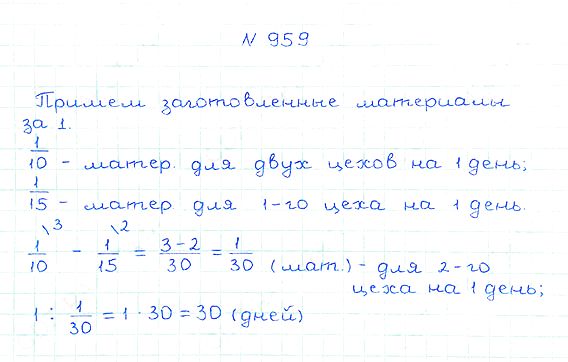 N 959
Примем заготовленные материалы
за 1.
1/10 - матер. для двух цехов на 1 день;
1/15 - матер для 1-го цеха на 1 день.
1/10 \3 - 1/15 \2 = 3-2/30 = 1/30 (мат.) - для 2-го
цеха на 1 день;
1 : 1/30 = 1 · 30 = 30 (дней)